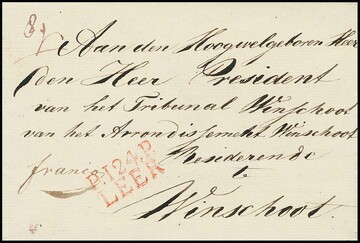 Aan den Hoogwelgeboren Heer
den Heer President
van het Tribunal Winschoot
van het Arrondissement Winschoot
Residerende
te
franco
P.124.P.
LEER
Winschoot.